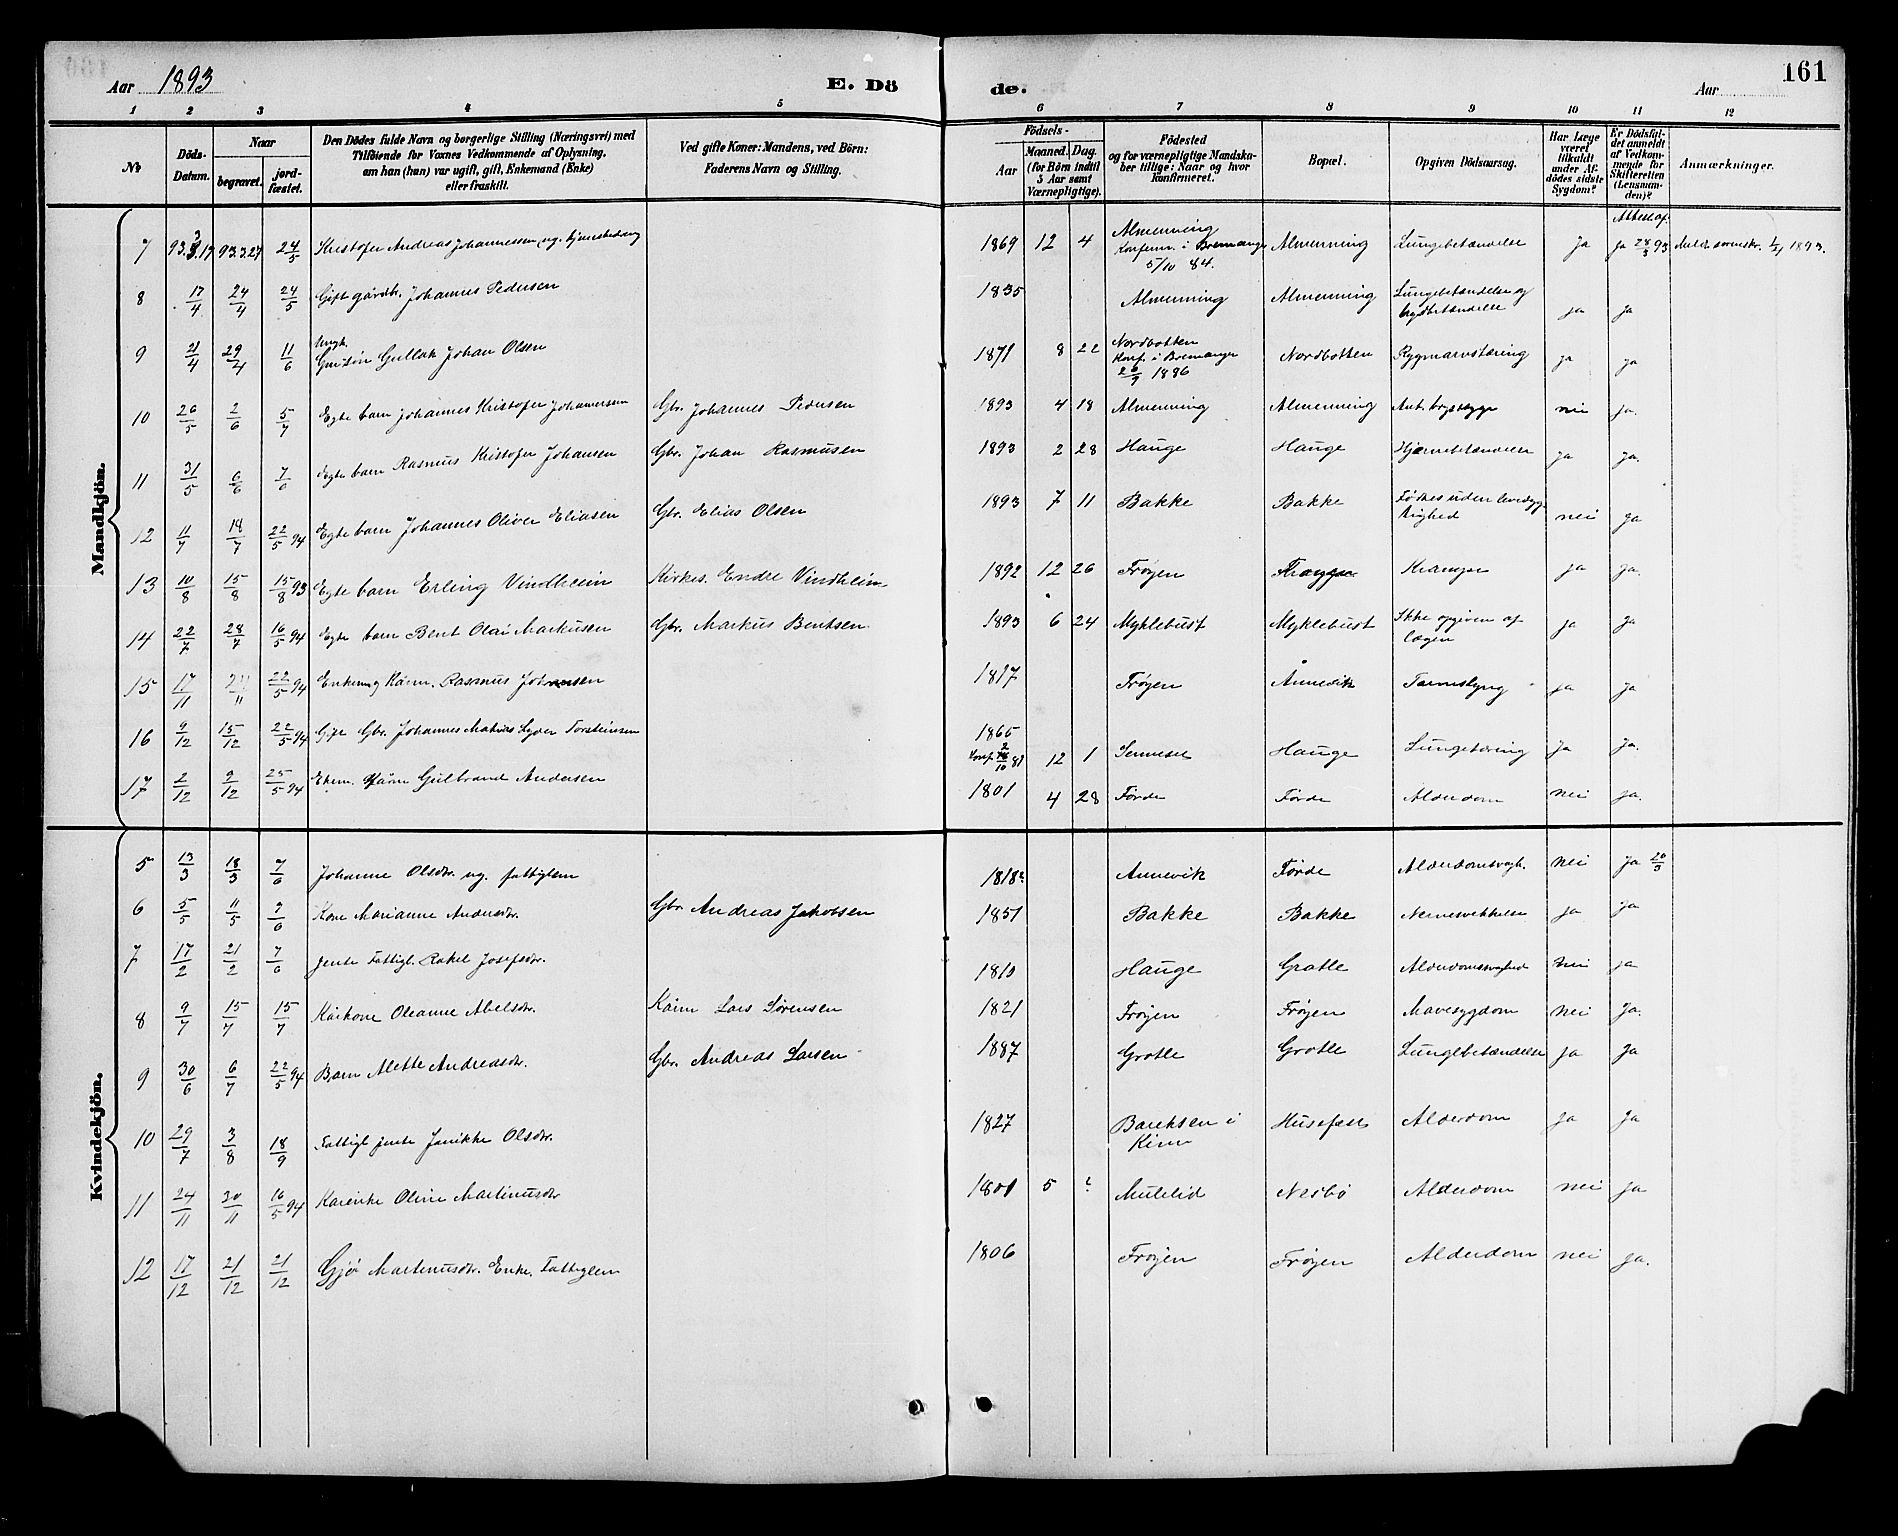 Aar 1893
E. Döde.
Aar
161
1 2 3 4 5 6 7 8 9 10 11 12
№
Döds-Datum.
Naar
begravet.
jord-fæstet.
Den Dödes fulde Navn og borgerlige Stilling (Næringsvei) med
Tilföiende for Voxnes Vedkommende af Oplysning,
om han (hun) var ugift, gift, Enkemand (Enke)
eller fraskilt.
Ved gifte Koner: Mandens, ved Börn:
Faderens Navn og Stilling.
Födsels-
Aar
Maaned. Dag.
(for Börn indtil
5 Aar samt
Værnepligtige).
Födested
og for værnepligtige Mandska-
ber tillige: Naar og hvor
konfirmeret.
Bopæl.
Opgiven Dödsaarsag.
Har Læge
været
tilkaldt
under Af-
dödes sidste
Sygdom?
Er Dödsfal-
det anmeldt
af Vedkom-
mende for
Skifteretten
(Lensman-
den)?
Anmærkninger.
Mandkjön.
7 93.3.17 93.3.27 24/5 Kristofer Andreas Johannessen 1869 12 4 Almenning Konfirm. i Bremanger 5/10 84. Almenning Lungebetændelse ja ja 28/3 93 1893.
8 17/4 24/4 24/5 Gift gårdbr. Johannes Pedersen 1835 Almenning Almenning Lungebetændelse og ja ja
9 21/4 29/4 11/6 Ungk. Gullak Johan Olsen 1871 8 22 Nordbotten Konf. i Bremanger 26/9 1886 Nordbotten Rygmarvstæring ja ja
10 26/5 2/6 5/7 Egte barn Johannes Kristofer Johannessen Gbr. Johannes Pedersen 1893 4 18 Almenning Almenning nei ja.
11 31/5 6/6 7/6 Egte barn Rasmus Kristofer Johansen Gbr. Johan Rasmusen 1893 2 28 Hauge Hauge Hjernebetændelse ja ja.
12 11/7 18/7 22/5 94 Egte barn Johannes Oliver Eliasen Gbr. Elias Olsen 1893 7 11 Bakke Bakke Fødtes uden levedyg-tighed nei ja
13 10/8 15/8 15/8 93 Egte barn Erling Vindheim Kirkes. Endre Vindheim 1892 12 26 Frøyen Krampe ja ja.
14 22/7 28/7 16/5 94 Egte barn Bent Olai Markusen Gbr. Markus Bentsen. 1893 6 24 Myklebust Myklebust Ikke opgiven af lægen ja ja
15 17/11 24/11 22/5 94 Enkem. Kårm. Rasmus 1817 Frøyen Ånnevik Tarmslyng ja ja
16 9/12 15/12 22/5 94 Gbr. Johannes Matias Torsteinsen 1865 Konf. 2/10 81 12 1 Hauge Lungetæring ja ja.
17 2/12 9/12 25/5 94 Kårm Gulbrand Andersen 1801 4 28 Førde Førde Alderdom nei ja.
Kvindekjön.
5 13/3 18/3 7/6 Johanne Olsdtr. ug. fattiglem 1818? Annevik Førde Alderdomssvagh. nei ja 20/3
6 5/5 11/5 9/6 Kone Marianne Andersdtr. Gbr. Andreas Jakobsen 1851 Bakke Bakke ja ja
7 17/2 21/2 7/6 Jente Fattigl. Rakel Josefsdtr. 1810 Hauge Grotle Alderdomssvaghed nei ja
8 9/7 15/7 15/7 Kårkone Oleanne Abelsdtr. Kårm Lars Sørensen 1821 Frøyen Frøyen Mavesygdom nei ja.
9 30/6 6/7 22/5 94 Barn Alette Andreasdtr. Gbr. Andreas Larsen 1887 Grotle Grotle Lungebetændelse ja ja
10 29/7 3/8 18/9 Fattigl jente Janikke Olsdtr. 1827 Bareksen i Kinn Husefest Alderdom ja ja
11 24/11 30/11 16/5 94 Oline Martinusdtr 1801 5 ? Mulelid Nesbø Alderdom nei ja
12 17/12 21/12 21/12 Gjør Martinusdtr. Enke, Fattiglem 1806 Frøyen Frøyen Alderdom nei ja.